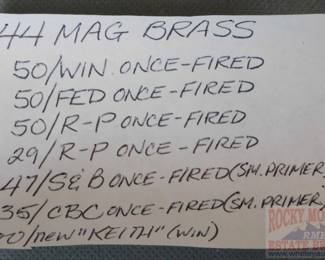 44 MAG BRASS
50/WIN ONCE-FIRED
50/FED ONCE-FIRED
50/R-P ONCE-FIRED
29/R-P ONCE-FIRED
47/S&B ONCE-FIRED (SM. PRIMER)
35/CBC ONCE-FIRED (SM. PRIMER
/new "KEITH" (WIN)
ROCKY MO
RME
ESTATE S